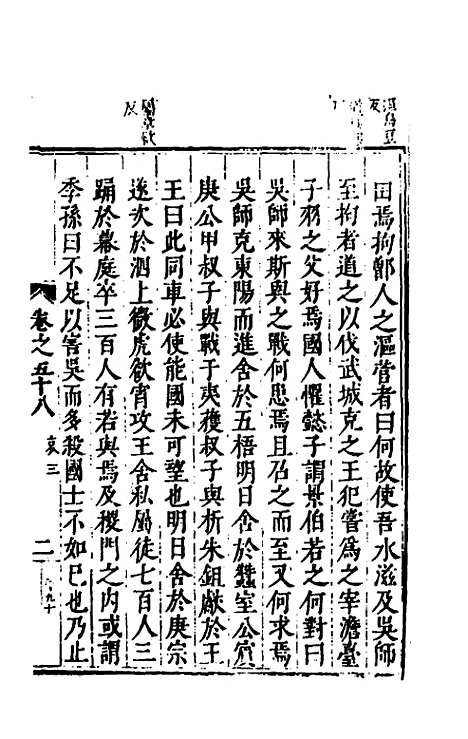 田焉拘鄫人之漚菅者曰何故使吾水滋及吳師
至拘者道之以伐武城克之王犯嘗為之宰澹臺
子羽之父好焉國人懼懿子謂景伯若之何對曰
吳師來斯與之戰何患焉且召之而至又何求焉
吳師克東陽而進舍於五梧明日舍於蠶室公賓
庚公甲叔子與戰于夷獲叔子與析朱鉏獻於王
王曰此同車必使能國未可望也明日舍於庚宗
遂次於泗上微虎欲宵攻王舍私屬徒七百人三
踊於幕庭卒三百人有若與焉及稷門之內或謂
季孫曰不足以害吳而多殺國士不如已也乃止
卷之五十八
哀三
二